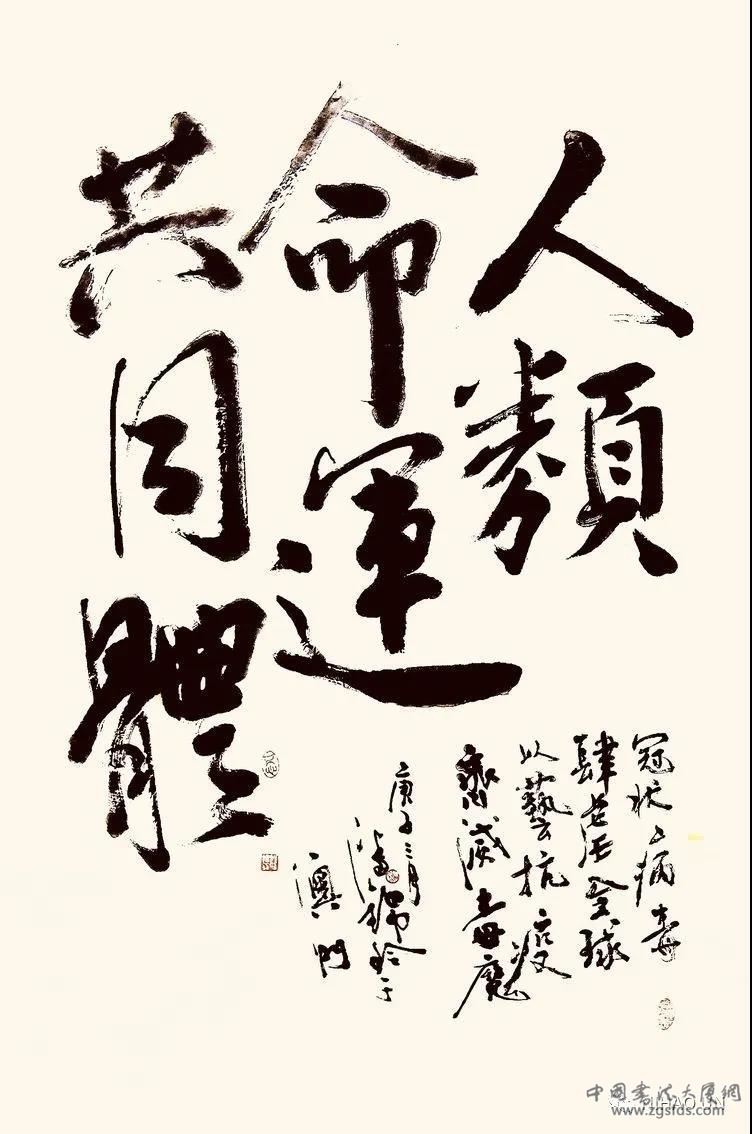 人類
命運
共同體
冠狀病毒
肆虐全球
以藝抗疫
齊滅毒魔
庚子三月
潘錦玲于
澳門
中国书法大厦網
www.zgsfds.com